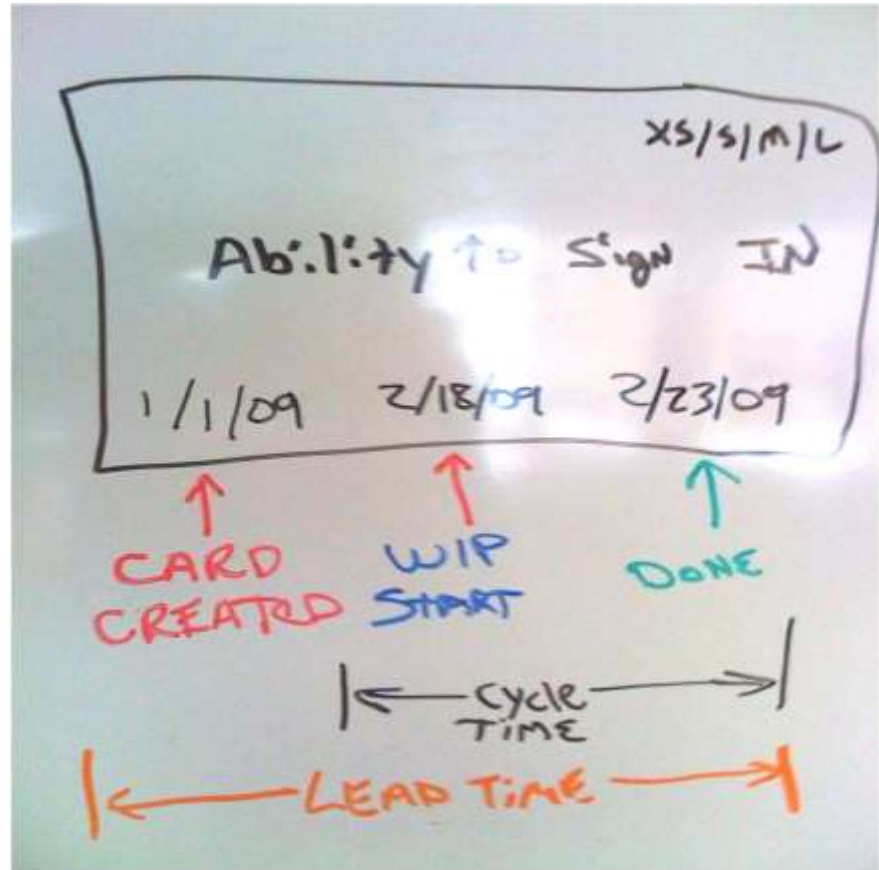 XS/S/M/L
Ability to Sign IN
1/1/09 2/18/09 2/23/09
CARD CREATED
WIP START
DONE
CYCLE TIME
LEAD TIME